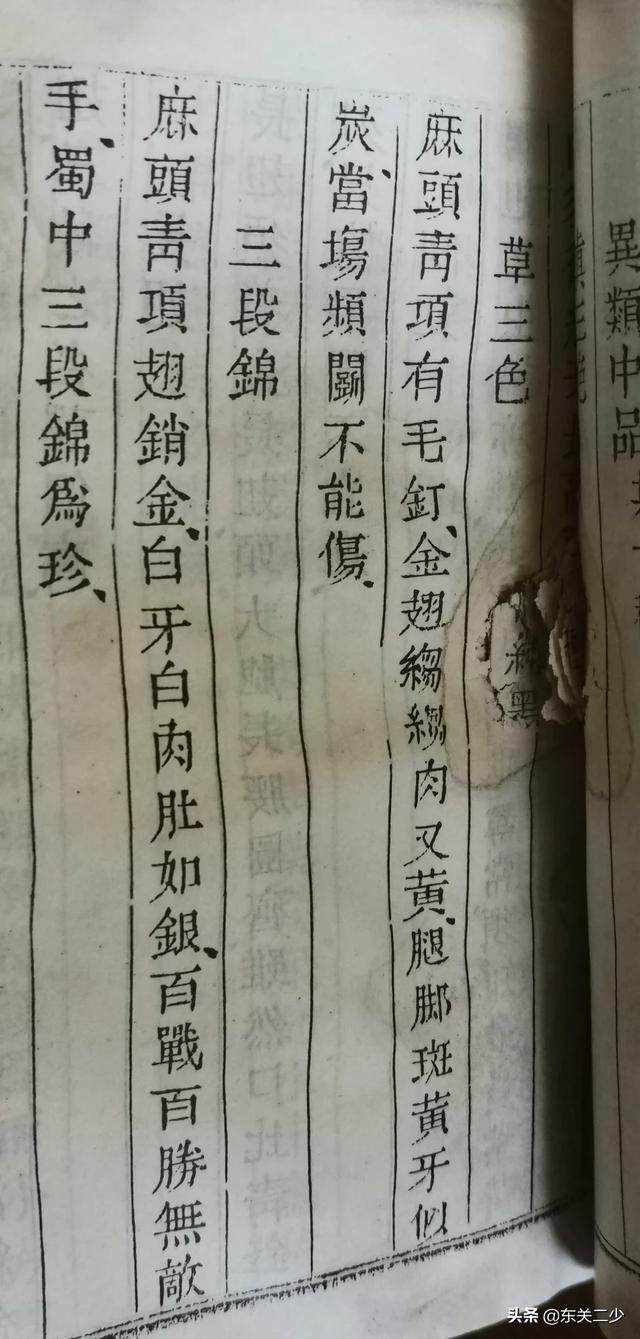 異類中品共
草三色
麻頭靑項有毛釘、金翅縐縐肉又黄、腿脚斑黄牙似
炭、當塲頻鬬不能傷、
三段錦
麻頭靑項翅銷金、白牙白肉肚如銀、百戰百勝無敵
手、蜀中三段錦爲珍、
头条 @东关二少